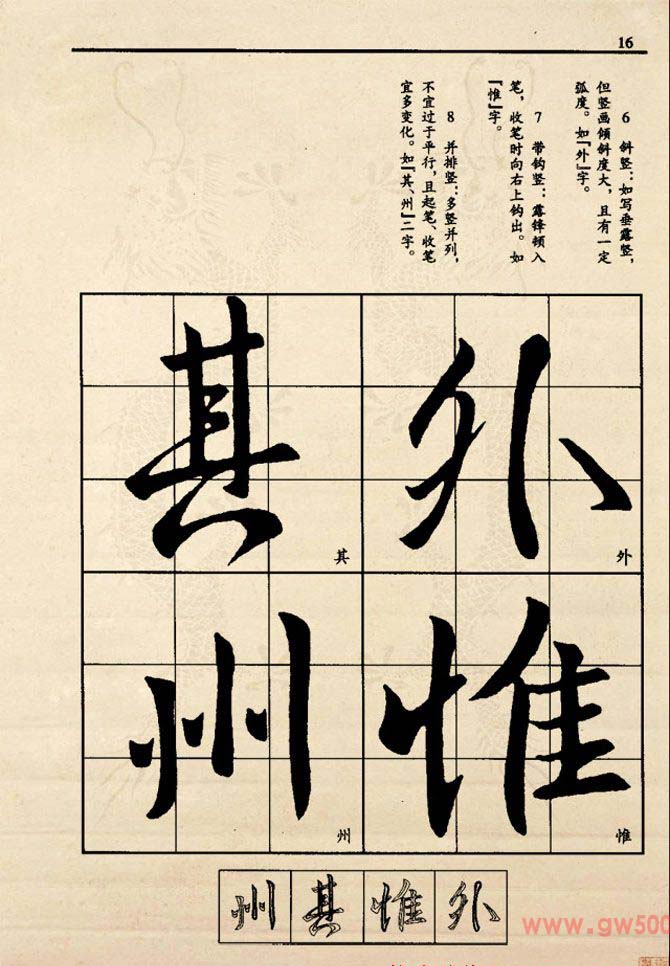 16
6 斜竖：如写垂露竖，
但竖画倾斜度大，且有一定
弧度。如『外』字。
7 带钩竖：露锋顿入
笔，收笔时向右上钩出。如
『惟』字。
8 并排竖：多竖并列，
不宜过于平行，且起笔、收笔
宜多变化。如『其、州』二字。
外
外
惟
惟
其
其
州
州
州其惟外
www.gw500